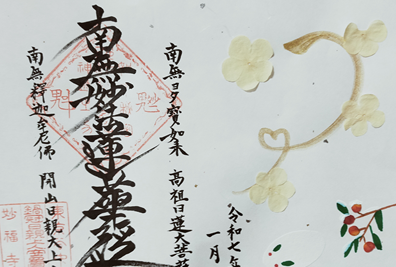 南無多寶如来 高祖日蓮大菩
南無妙法蓮華経
南無釋迦牟尼佛 開山日親大上
令和七年
一月
妙福寺